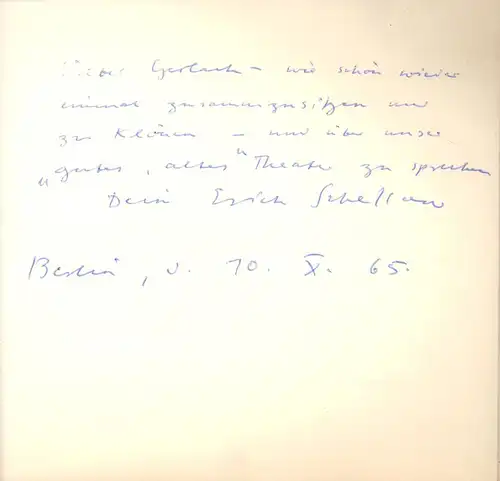 Lieber Gerlach – wie schön wieder
einmal zusammenzusitzen und
zu klönen – und über unser
„gutes, altes" Theater zu sprechen
Dein Erich Schellow
Berlin, d. 10. X. 65.